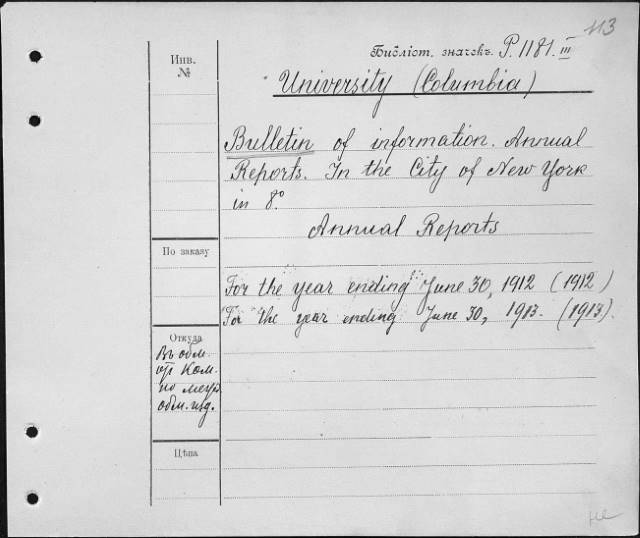 113
Библіот. значекъ. P. 1181. III
Инв.
№
University (Columbia)
Bulletin of information. Annual
Reports. In the City of New York
in 8°.
Annual Reports
По заказу
For the year ending June 30, 1912 (1912)
For the year ending June 30, 1913. (1913).
Откуда
Въ обм.
отъ Ком.
по меж.
обм. изд.
Цѣна